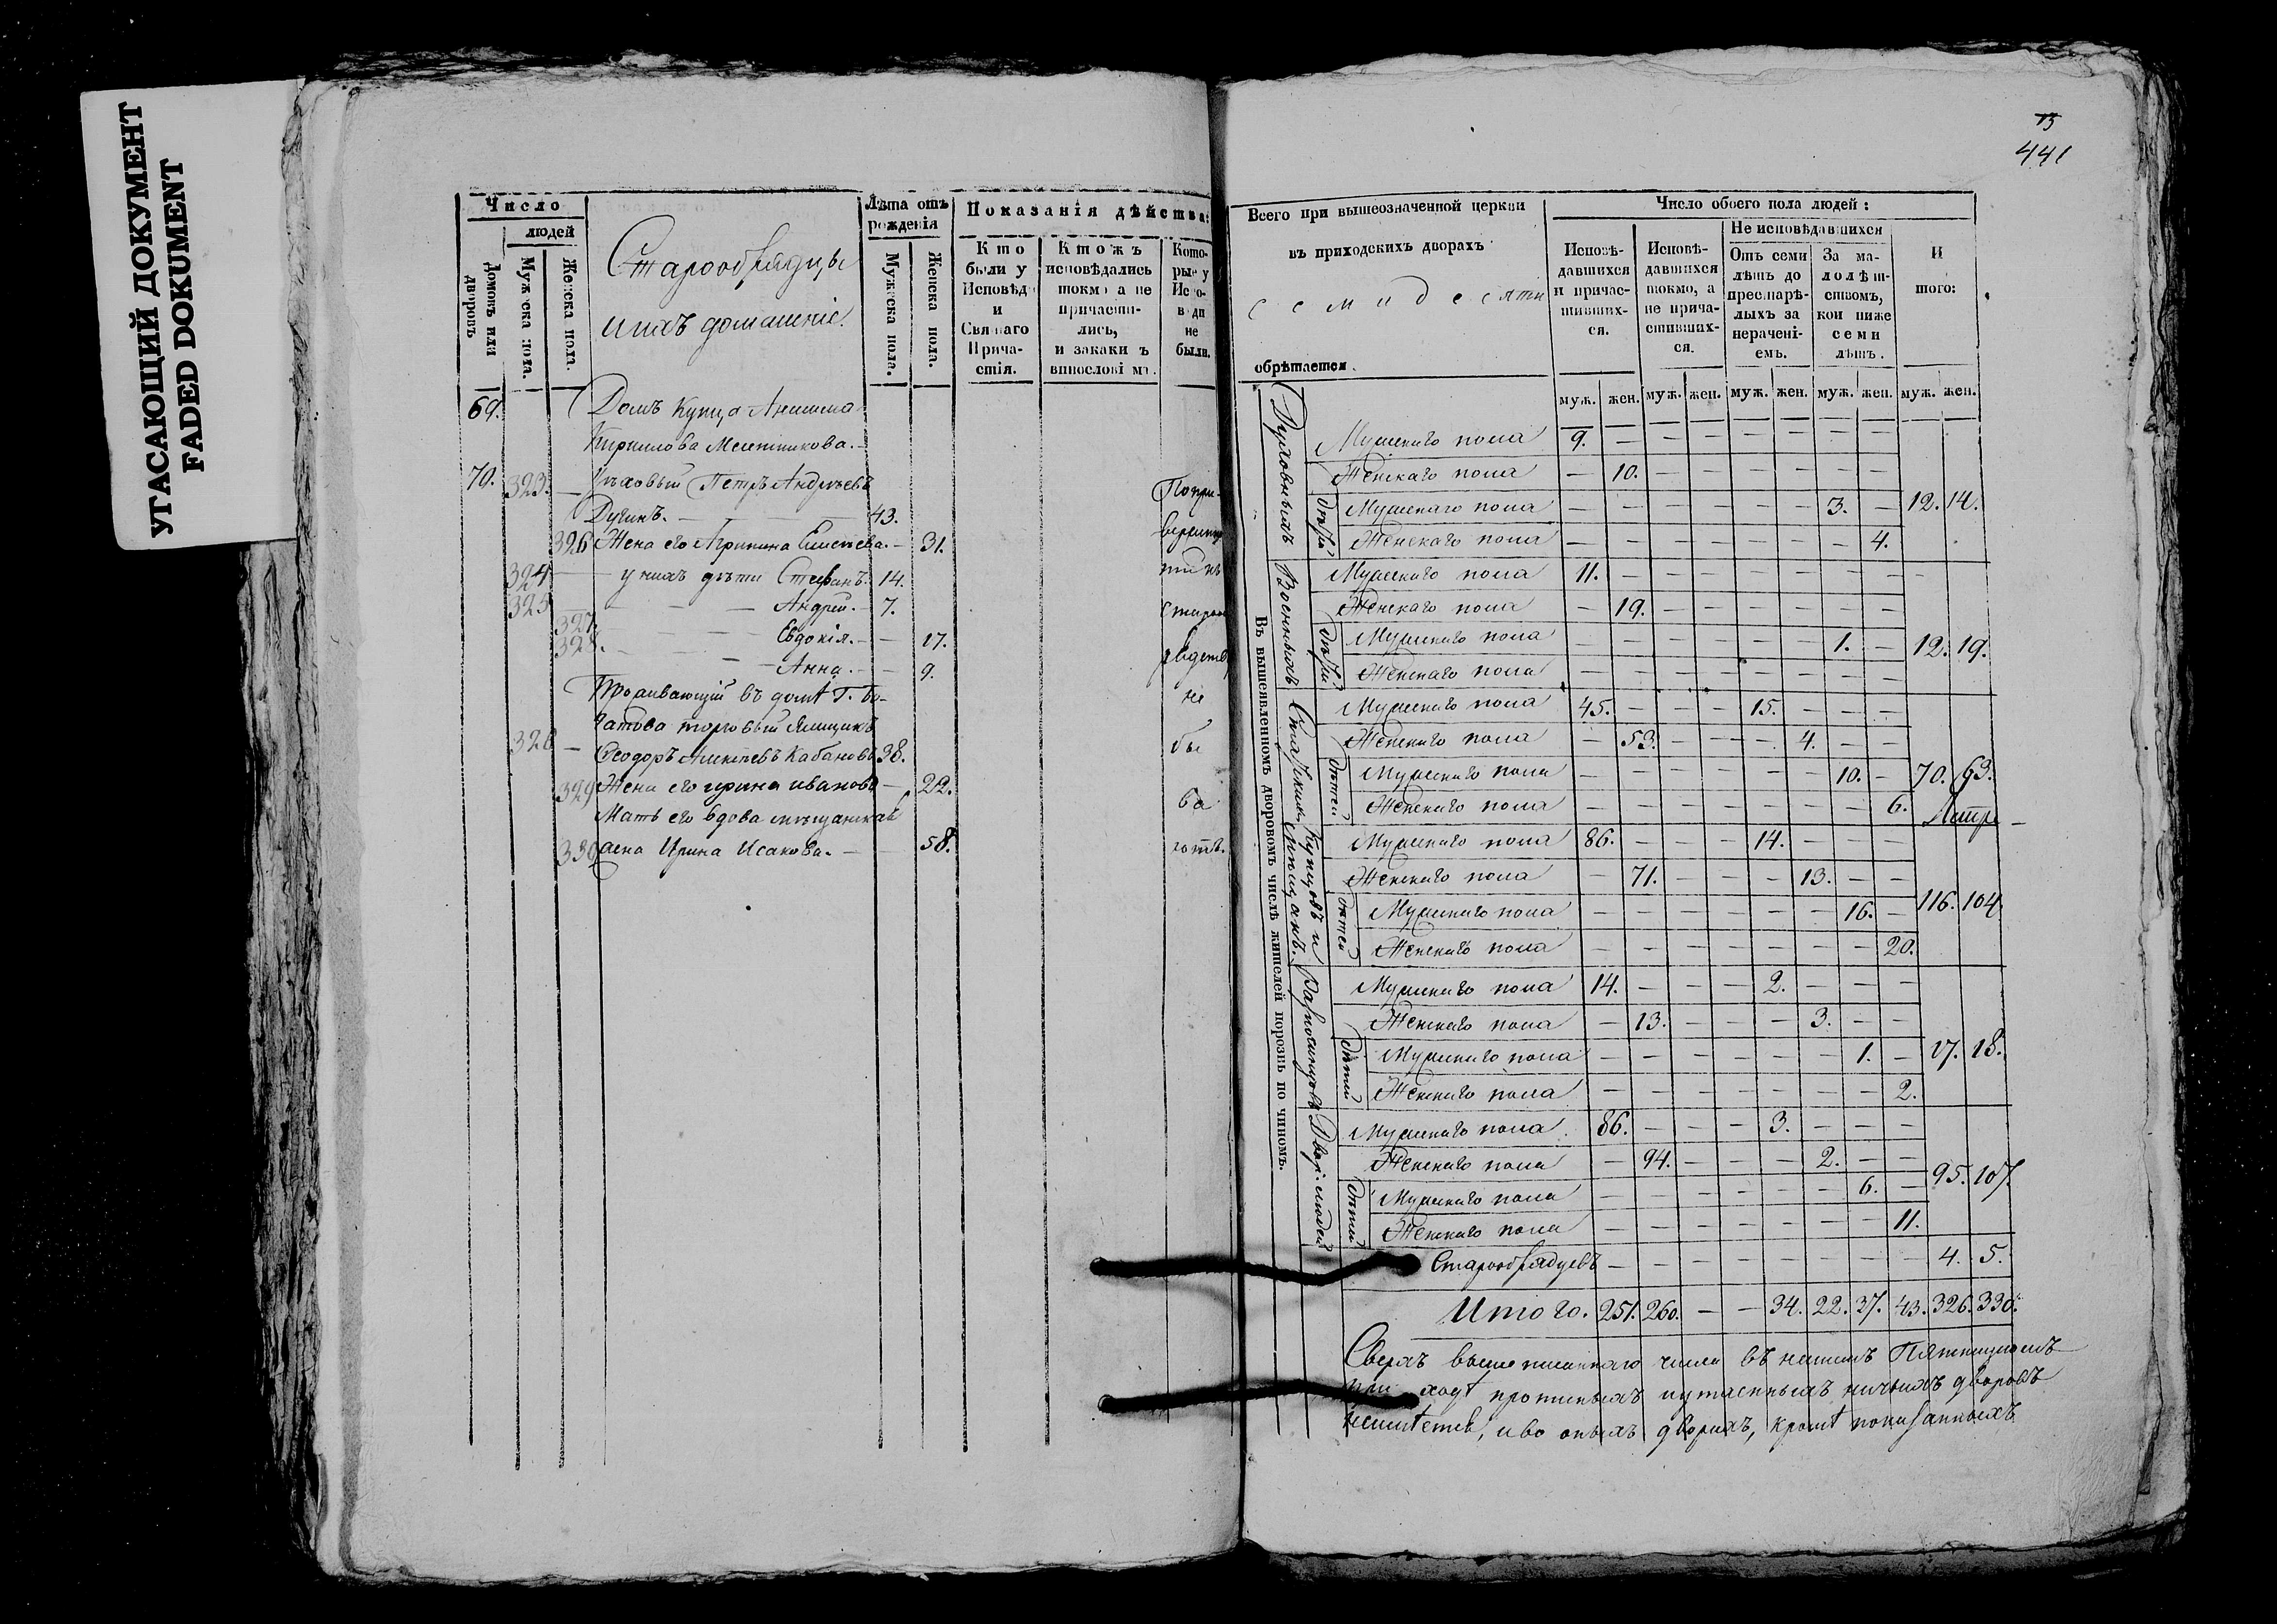 УГАСАЮЩИЙ ДОКУМЕНТ
FADED DOKUMENT
Число
людей
домовъ или дворовъ
Мужеска пола.
Женска пола.
Старообрядцы
и ихъ домашніе.
Лѣта отъ рожденія
Мужеска пола.
Женска пола.
Показанія дѣйства:
Кто были у Исповѣди и Святаго Причастія.
Ктожъ исповѣдались токмо а не причастились, и за какимъ винословіемъ.
Которые у Исповѣди не были.
69. Домъ Купца Анисима
Кирилова Мелетникова.
70. 323. — Цѣховый Петръ Андреевъ
Дугинъ. — 43.
326 Жена его Агрипина Елисѣева. — 31.
324 — у нихъ дѣти Стефанъ. 14.
325 — Андрей. — 7.
327. — Евдокія. — 17.
328. — Анна. — 9.
Проживающій въ домѣ Г. Бо-
гатова торговый Ямщикъ
326 — Ѳеодоръ Алексѣевъ Кабановъ 38.
329 Жена его ирина иванова — 22.
Мать его вдова мѣщанская
330 жена Ирина Исакова. — 58.
13
441
Всего при вышеозначенной церкви
въ приходскихъ дворахъ
семидесяти
обрѣтается.
Число обоего пола людей:
Исповѣдавшихся и причастившихся.
Исповѣдавшихся токмо, а не причастившихся.
Не исповѣдавшихся
Отъ семи лѣтъ до престарѣлыхъ за нераченіемъ.
За малолѣтствомъ, кои ниже семи лѣтъ.
И того:
муж. жен. муж. жен. муж. жен. муж. жен. муж. жен.
Въ вышеявленномъ дворовомъ числѣ жителей порознь по чиномъ.
Духовныхъ
Мужескаго пола 9. — — — — — — —
Женскаго пола — 10. — — — — — —
Дѣтей
Мужескаго пола — — — — — — 3. — 12. 14.
Женскаго пола — — — — — — — 4.
Военныхъ
Мужескаго пола 11. — — — — — — —
Женскаго пола — 19. — — — — — —
Дѣтей
Мужескаго пола — — — — — — 1. — 12. 19.
Женскаго пола — — — — — — — —
Статскихъ
Мужескаго пола 45. — — — 15. — — —
Женскаго пола — 53. — — — 4. — —
Дѣтей
Мужескаго пола — — — — — — 10. — 70. 63.
Женскаго пола — — — — — — — 6.
Купцовъ и мѣщанъ.
Мужескаго пола 86. — — — 14. — — —
Женскаго пола — 71. — — — 13. — —
Дѣтей
Мужескаго пола — — — — — — 16. — 116. 104.
Женскаго пола — — — — — — — 20.
Разночинцовъ
Мужескаго пола 14. — — — 2. — — —
Женскаго пола — 13. — — — 3. — —
Дѣтей
Мужескаго пола — — — — — — 1. — 17. 18.
Женскаго пола — — — — — — — 2.
Двор. людей
Мужескаго пола 86. — — — 3. — — —
Женскаго пола — 94. — — — 2. — —
Дѣтей
Мужескаго пола — — — — — — 6. — 95. 107.
Женскаго пола — — — — — — — 11.
Старообрядцевъ — — — — — — — — 4. 5.
Итого. 251. 260. — — 34. 22. 37. 43. 326. 330.
Сверхъ вышеписаннаго числа въ нашемъ Пятницкомъ
приходѣ прописныхъ и утаенныхъ ничьихъ дворовъ
неимѣется, и во оныхъ дворахъ, кромѣ показанныхъ